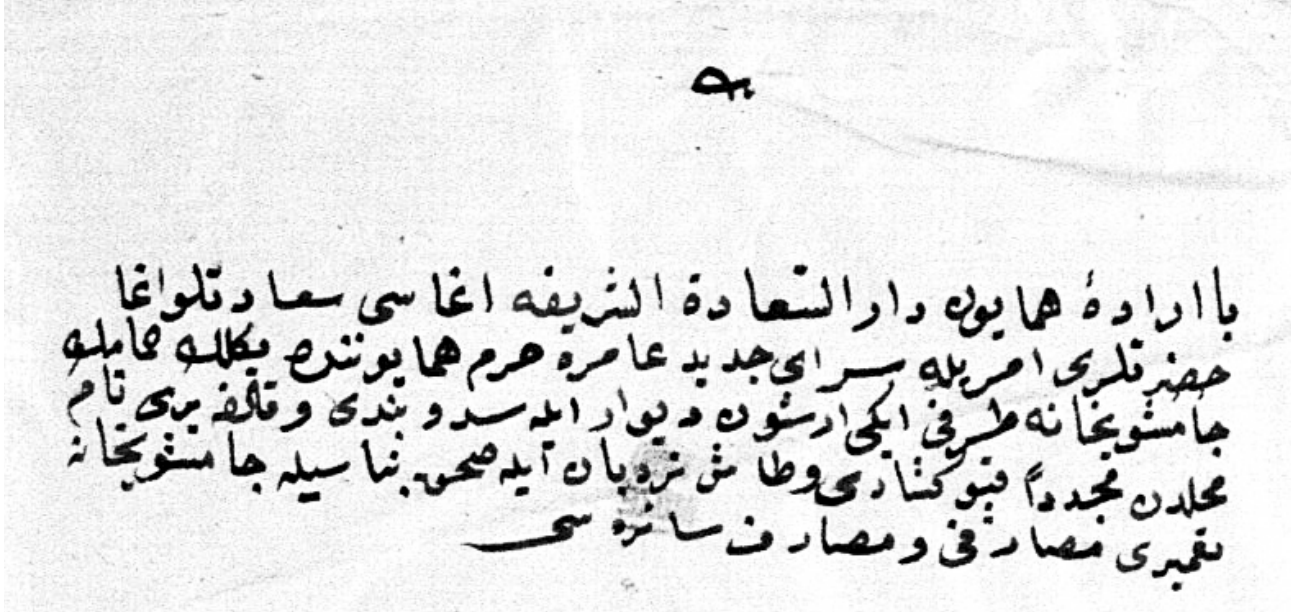 با ارادۀ همایون دار السعادة الشریفه اغاسی سعادتلو اغا
حضرتلری امریله سرای جدید عامره حرم همایوننده حمامك
جامشویخانه طرفی ایکی ارشون دیوار ایله سد و بندی و قالفه یری نام
محلدن مجدداً قپو کشادی و طاش نردبان ایله صحن بناسیله جامشویخانه
تعمیری مصارفی و مصارف سائره سی